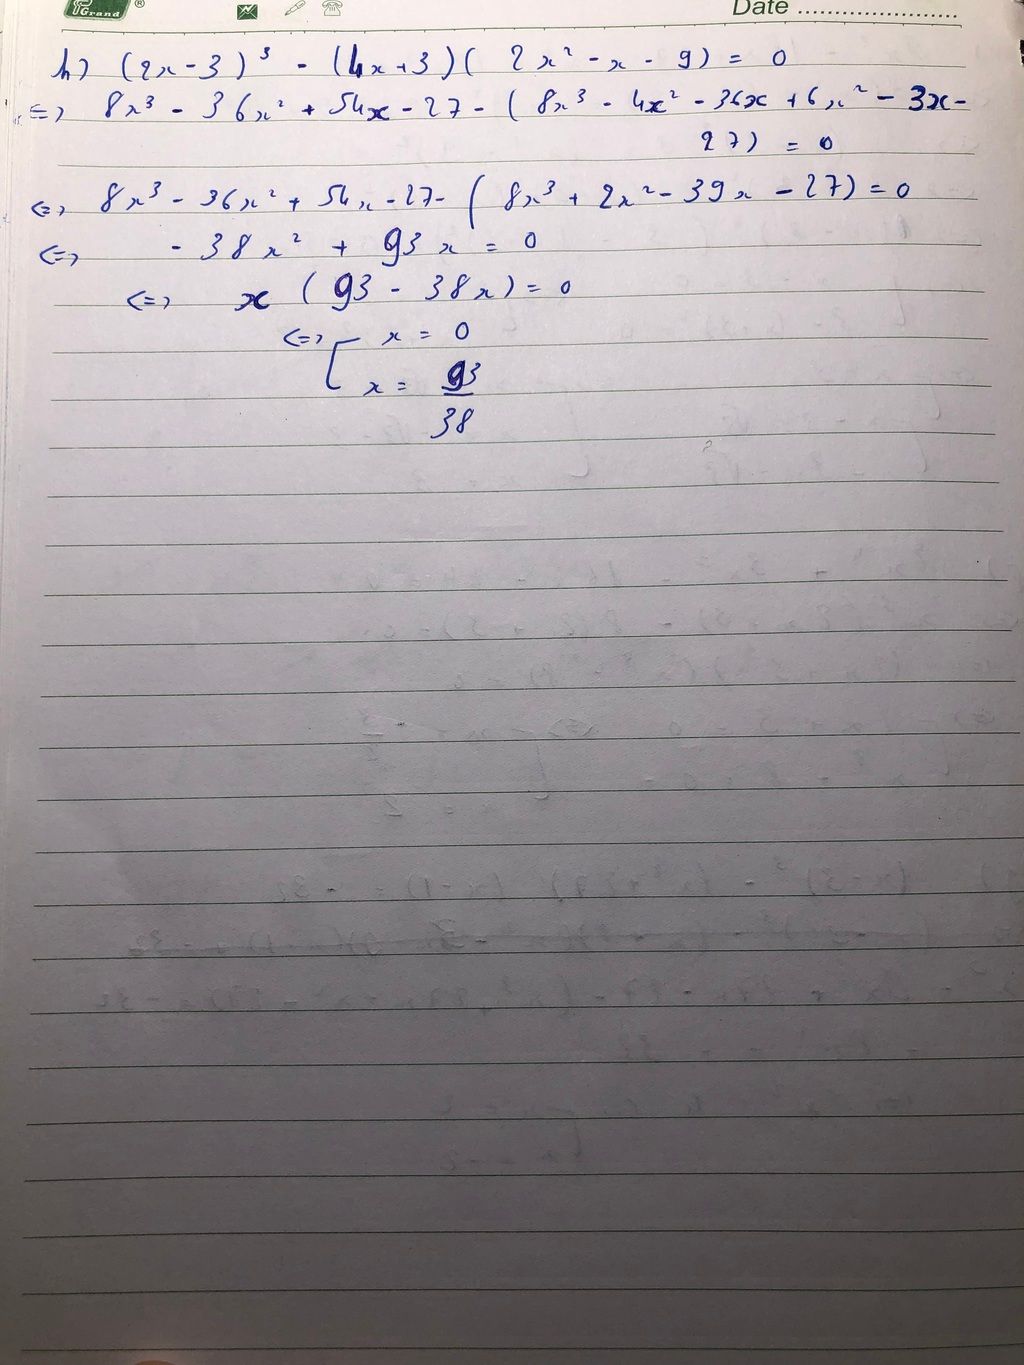 Grand ® Date ........................
h) (2x-3)³ - (4x+3)( 2x² - x - 9) = 0
<=> 8x³ - 36x² + 54x - 27 - ( 8x³ - 4x² - 36x + 6x² - 3x -
27) = 0
<=> 8x³ - 36x² + 54x - 27 - ( 8x³ + 2x² - 39x - 27) = 0
<=> - 38x² + 93x = 0
<=> x ( 93 - 38x) = 0
<=> [ x = 0
x = 93/38